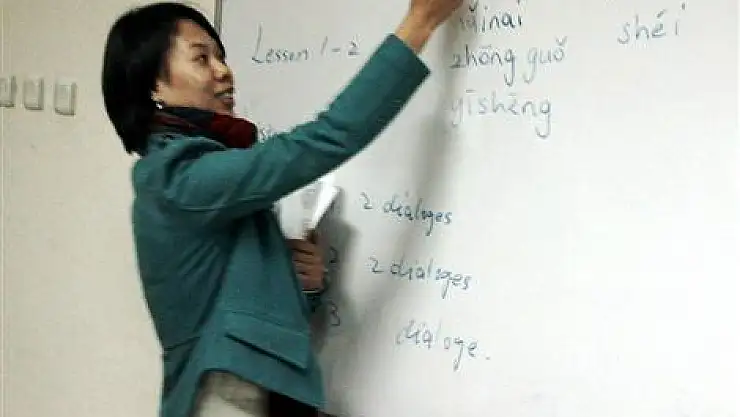 Lesson 1-2
shéi
zhōng guǒ
yīshēng
2 dialoges
2 2 dialoges
3 dialoge.